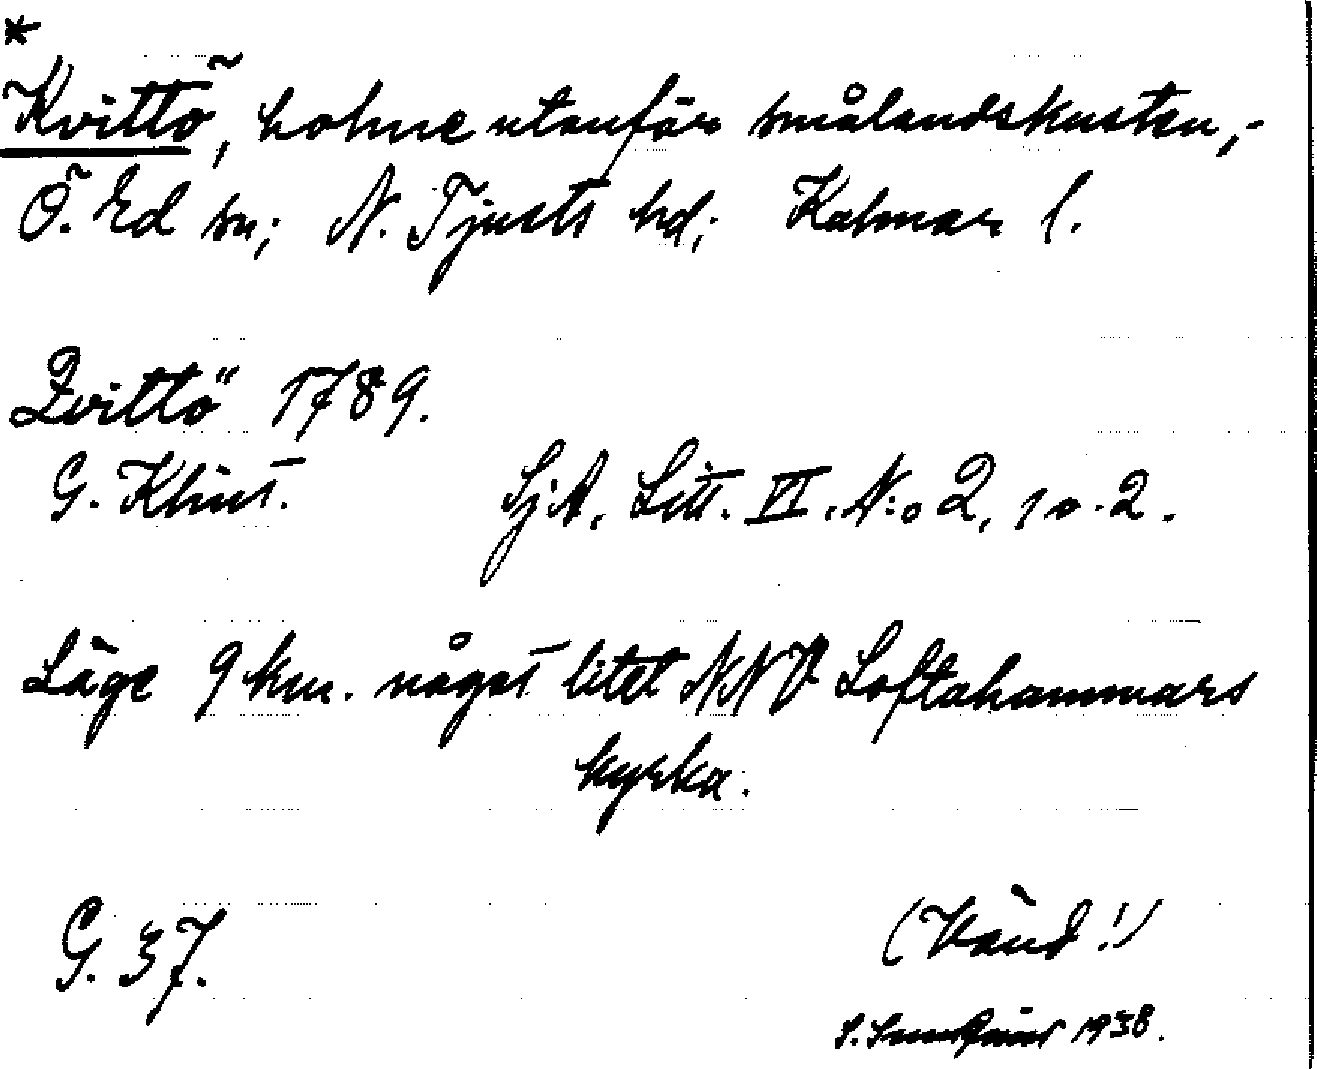 *
Kvittö, holme utanför smålandskusten,-
Ö. Ed sn; N. Tjusts hd; Kalmar l.
Qvittö 1789.
G. Klint. SjA, Litt. VI. N:o 2, 1 o. 2.
Läge 9 km. något litet NNV Loftahammars
kyrka.
G. 37. (Vänd!)
S. 1938.